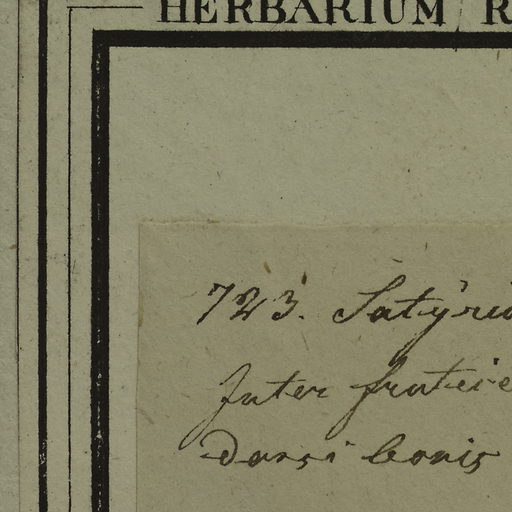 HERBARIUM R
723. Satyri
Inter frutice
dorsi leonis